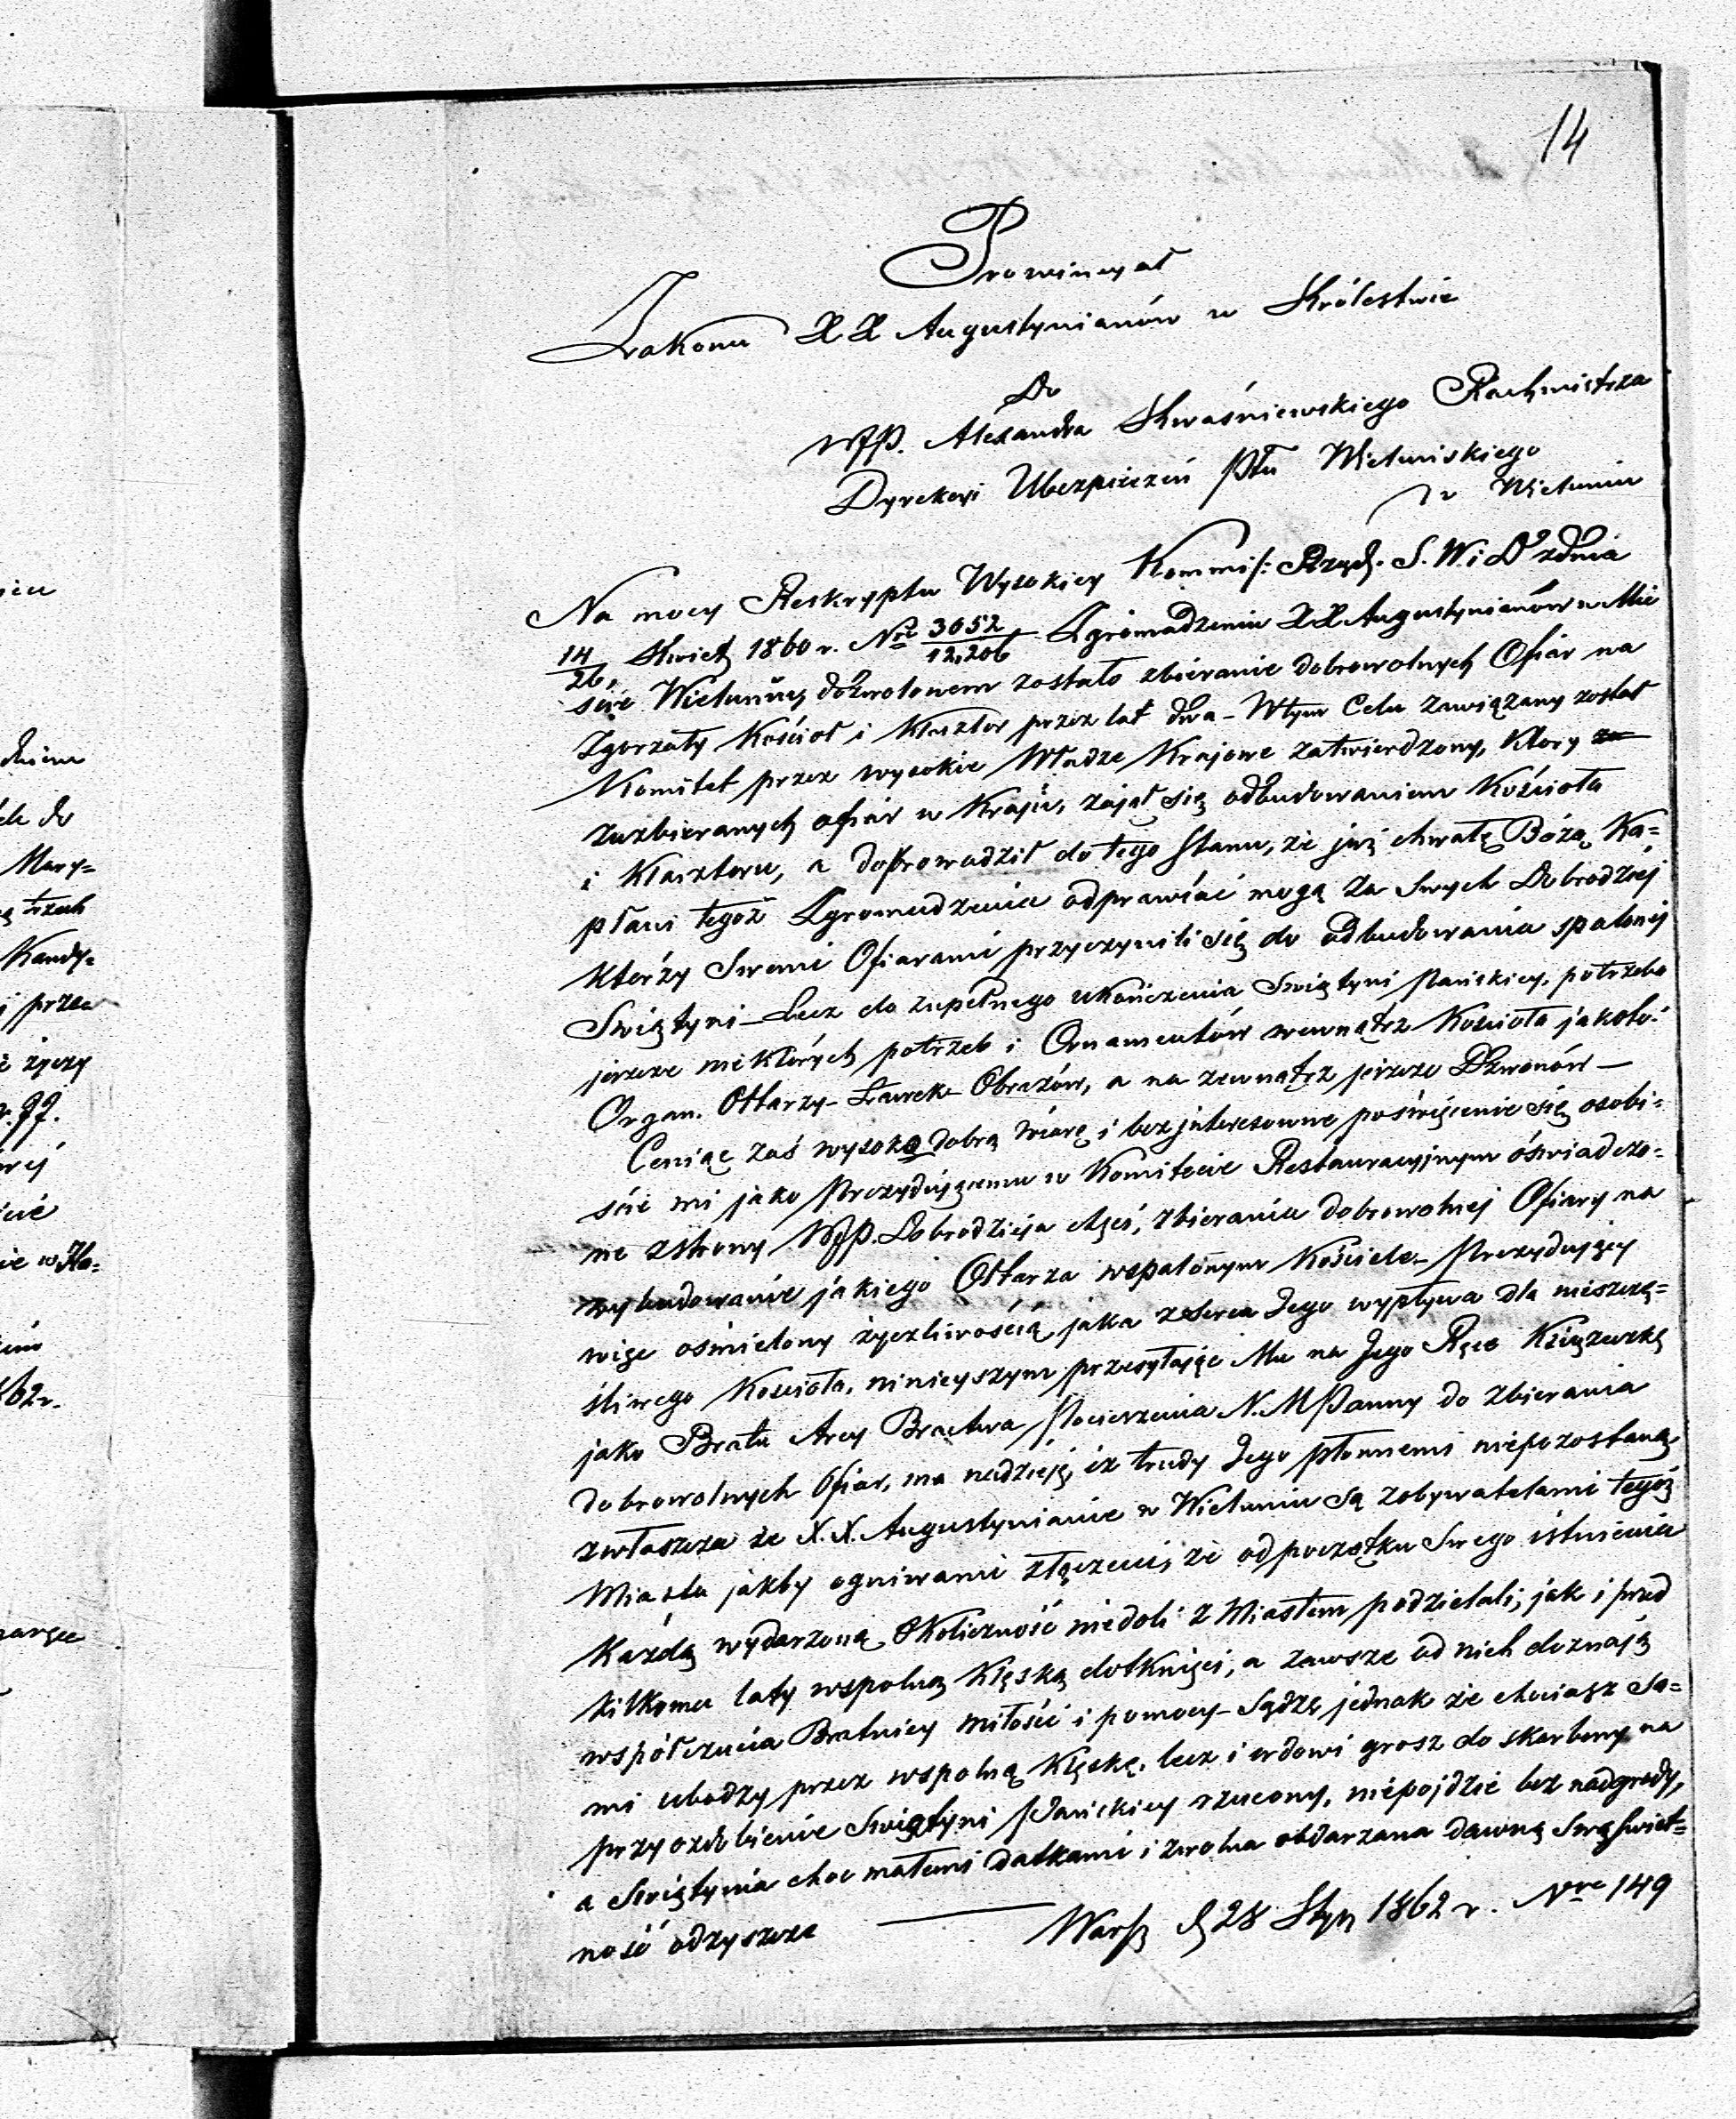 14
Prowincyał
Zakonu XX Augustynianów w Królestwie
Do
WJP. Alexandra Kwaśniewskiego Rachmistrza
Dyrekcyi Ubezpieczeń Ptu Wieluńskiego
w Wieluniu
Na mocy Reskryptu Wysokiey Kommis: Rząd. S. W. i D. zdnia
14/26, Kwiet 1860 r. Nro 3052/12,206 Zgromadzeniu XX Augustynianów w Mie
ście Wieluniu, dozwolonem zostało zbieranie dobrowolnych Ofiar na
Zgorzały Kościoł i Klasztor przez lat dwa - Wtym Celu zawiązany został
Komitet przez wysokie Władze Krajowe zatwierdzony, Ktory
zuzbieranych ofiar w Kraju, zajął się odbudowaniem Kościoła
i Klasztoru, a doprowadził do tego stanu, że już chwałę Bożą, Ka=
płani tegoż Zgromadzenia odprawiać mogą za Swych Dobrodziej
Którzy Swemi Ofiarami przyczynili się do odbudowania spalonej
Swiątyni - Lecz do zupełnego ukończenia Swiątyni Pańskiey, potrzeba
jeszcze niektórych potrzeb i Ornamentów wewnątrz Kościoła jakoto:
Organ. Ołtarzy - Ławek - Obrazów, a na zewnątrz jeszcze Dzwonów —
Ceniąc zaś wysoko dobrą wiarę i bezjnteresowne poświęcenie się osobi=
ście mi jako Prezydującemu w Komitecie Restauracyjnym oświadczo=
ne zstrony WJP. Dobrodzieja chęć, zbierania dobrowolnej Ofiary na
wybudowanie jakiego Ołtarza wspalonym Kościele - Prezydujący
więc ośmielony życzliwością jaka zserca Jego wypływa dla nieszczę=
śliwego Kościoła, niniejszym przesyłając Mu na Jego Ręce Książeczkę
jako Bratu Arcy Bractwa Pocieszenia N. M Panny do zbierania
dobrowolnych Ofiar, ma nadzieję, iż trudy Jego płonnemi niepozostaną,
zwłaszcza że X.X. Augustynianie w Wieluniu są zobywatelami tegoż
Miasta jakby ogniwami złączeni, że od początku Swego istnienia
Każdą wydarzoną Okoliczność niedoli z Miastem podzielali, jak i przed
kilkoma laty wspolną Klęską dotknięci, a zawsze od nich doznają
współczucia Bratniey miłości i pomocy - Sądzę jednak że chociasz sa=
mi ubodzy przez wspolną Klęskę, lecz i wdowi grosz do skarbony na
przyozdobienie Swiątyni Pańskiey rzucony, niepojdzie bez nadgrody,
a Swiątynia choc małemi datkami i zwolna obdarzana dawną Swą swiet=
ność odzyszcze
Wars. d. 28 Stycz 1862 r. Nro 149